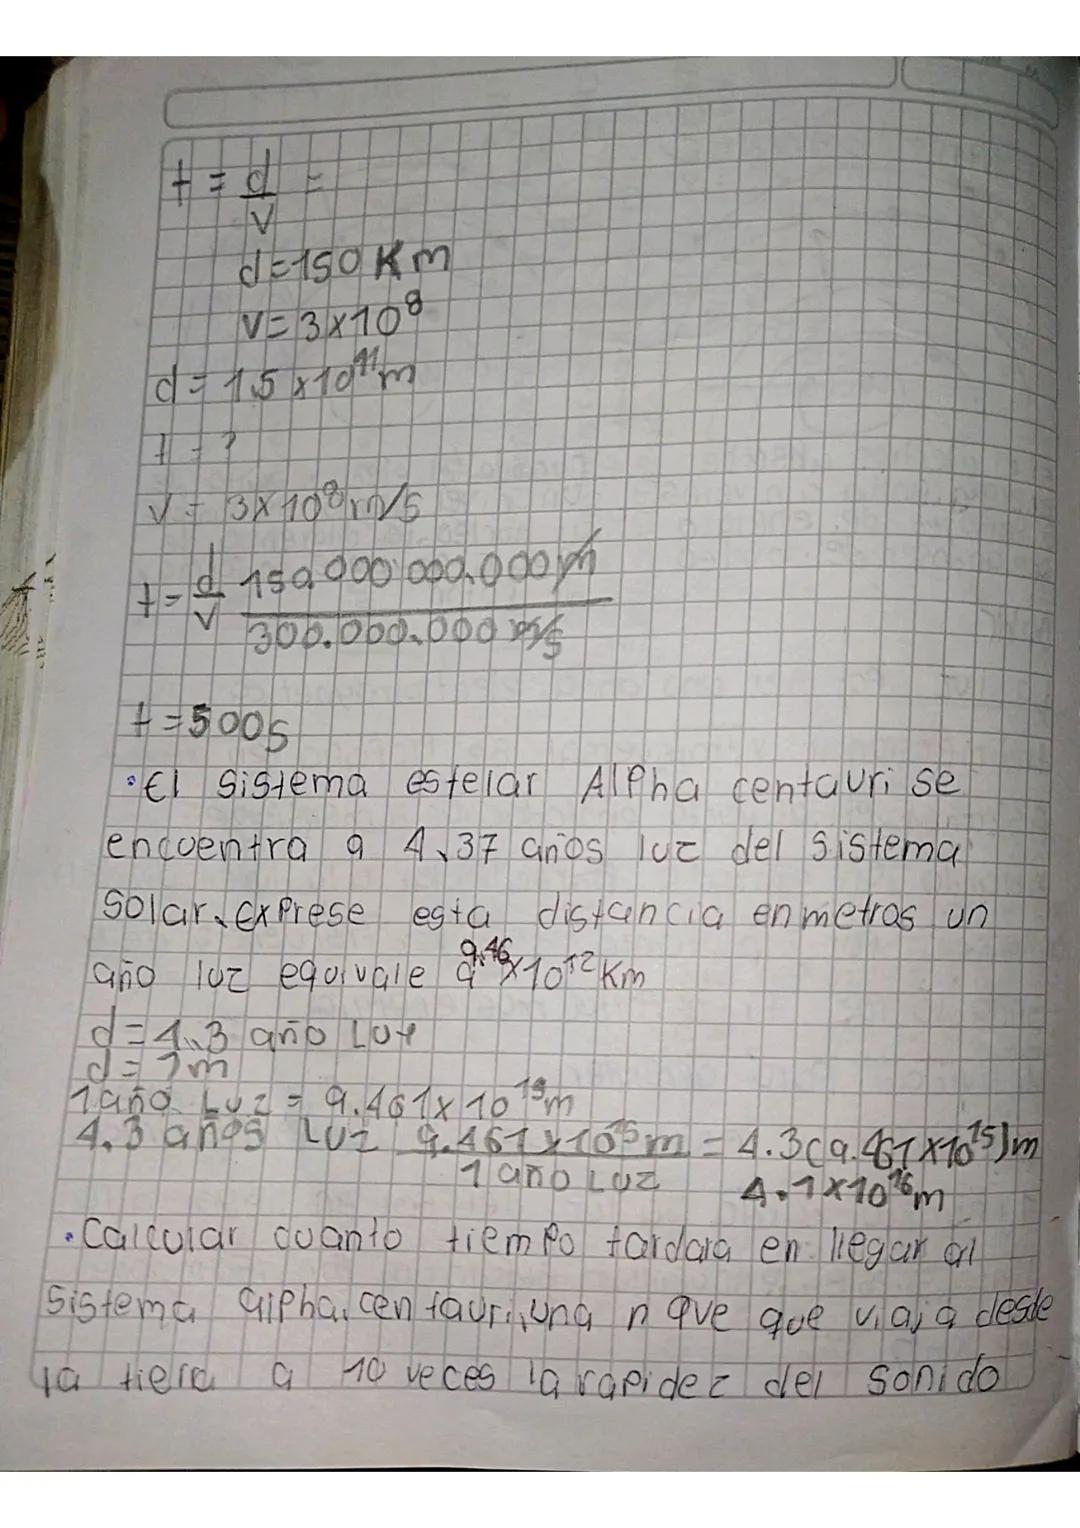 t = d/v =
d=150 Km
v= 3x10⁸
d= 1.5 x10¹¹m
t = ?
v = 3x10⁸ m/s
t= d/v 150.000.000.000 m / 300.000.000 m/s
t =500s
• El sistema estelar Alpha centauri se
encuentra a 4,37 años luz del sistema
solar, exprese esta distancia en metros un
año luz equivale a 9.46x10¹² Km
d=4.3 año Luz
d= ?m
1año Luz = 9.461x10¹⁵m
4.3 años Luz 9.461x10¹⁵m / 1 año Luz = 4.3(9.461x10¹⁵)m
4.1x10¹⁶m
• Calcular cuanto tiempo tardara en llegar al
sistema alpha, centauri, una nave que viaja desde
la tierra a 10 veces la rapidez del sonido